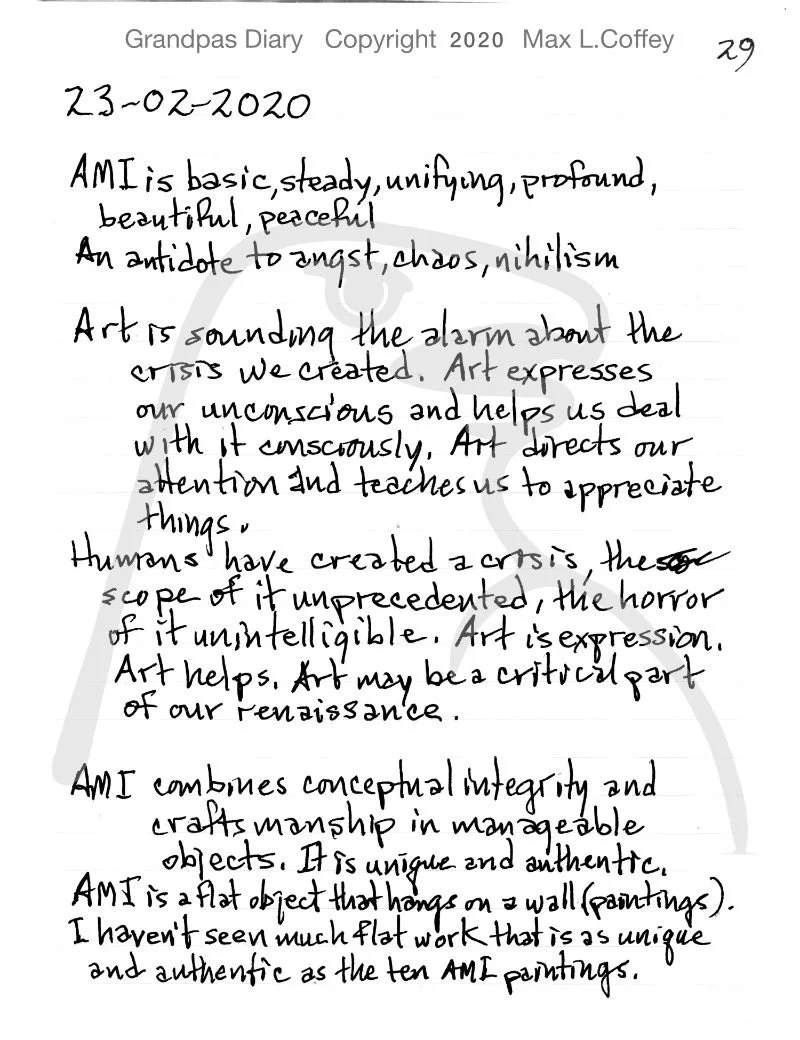 Grandpas Diary Copyright 2020 Max L.Coffey
29
23-02-2020
AMI is basic, steady, unifying, profound,
beautiful, peaceful
An antidote to angst, chaos, nihilism
Art is sounding the alarm about the
crisis we created. Art expresses
our unconscious and helps us deal
with it consciously. Art directs our
attention and teaches us to appreciate
things.
Humans have created a crisis, the
scope of it unprecedented, the horror
of it unintelligible. Art is expression.
Art helps. Art may be a critical part
of our renaissance.
AMI combines conceptual integrity and
craftsmanship in manageable
objects. It is unique and authentic.
AMI is a flat object that hangs on a wall (paintings).
I haven't seen much flat work that is as unique
and authentic as the ten AMI paintings.